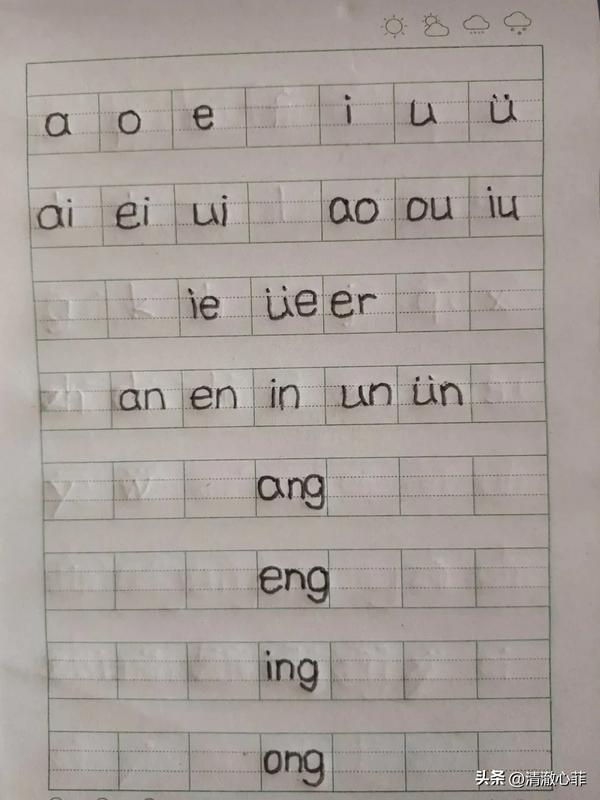 a o e i u ü
ai ei ui ao ou iu
ie üe er
an en in un ün
ang
eng
ing
ong
头条 @清澈心菲